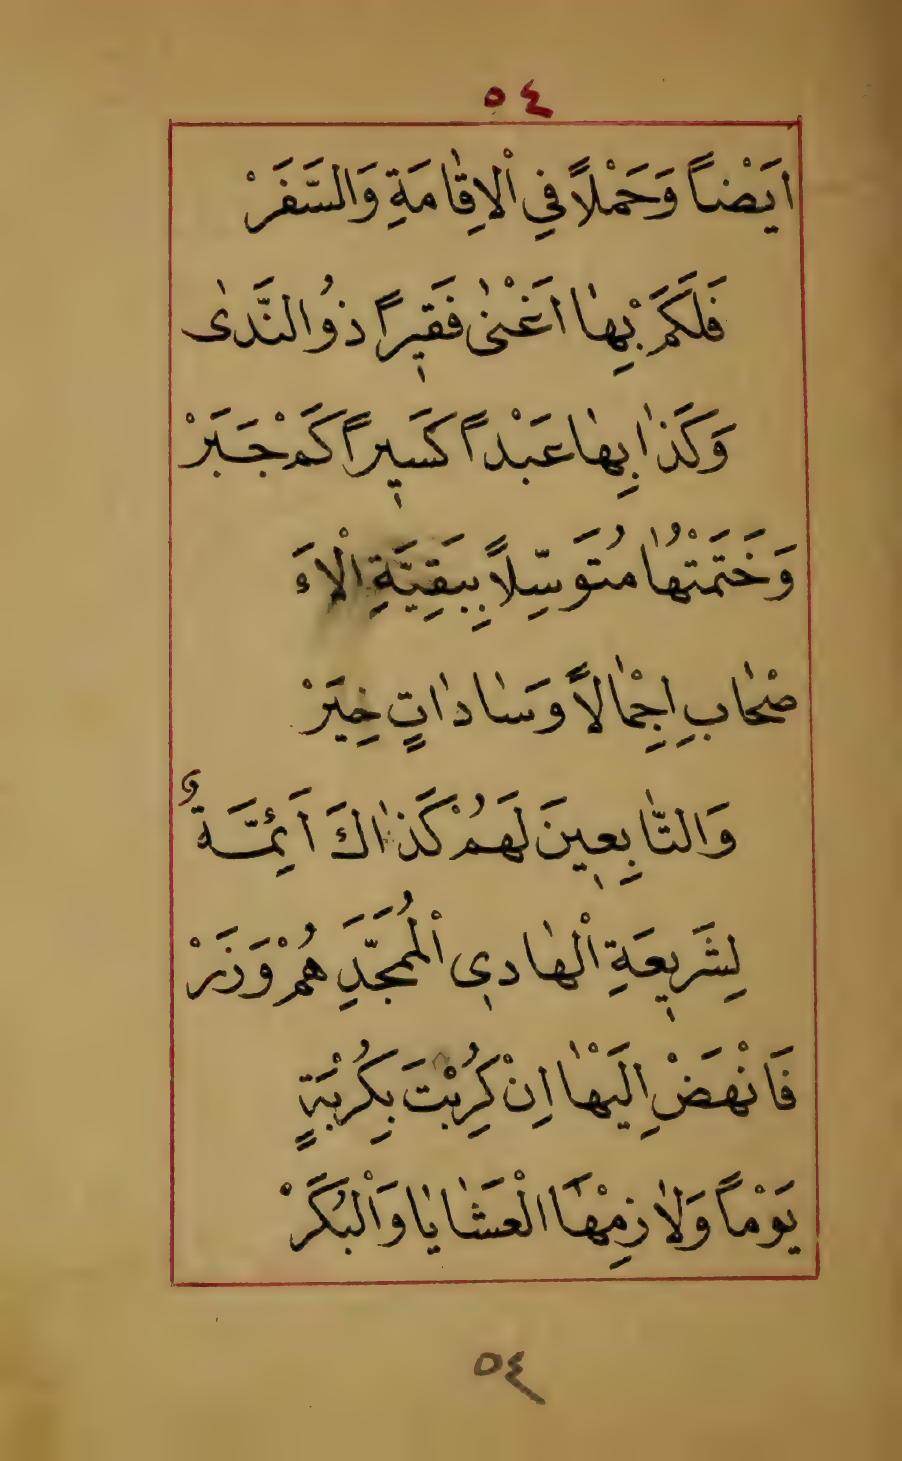 ٥٤
اَيَضْاً وَحَمْلاً فِي اْلاِقٰامَةِ وَالسَّفَرْ
فَلَكَمْ بِهٰا اَغْنٰى فَقٖيراً ذوُالنَّدٰى
وَكَذٰا بِهٰا عَبْداً كَسٖيراً كَمْ جَبَرْ
وَخَتَمْتُهٰا مُتَوَسِّلاً بِبَقِيَّةِ اْلاَءَ
صْحٰابِ اِجْمٰالاً وَسٰادٰاتٍ خِيَرْ
وَالتّٰابِعٖينَ لَهُمْ كَذٰاكَ اَئِمَّةٌ
لِشَرٖيعَةِ اْلهٰادٖى اْلمُمَجَّدِ هُمْ وَزَرْ
فَانْهَضْ اِلَيْهٰا اِنْ كُرِبْتَ بِكُرْبَةٍ
يَوْماً وَلاٰزِمْهَا الْعَشٰايٰا وَاْلبُكَرْ
٥٤